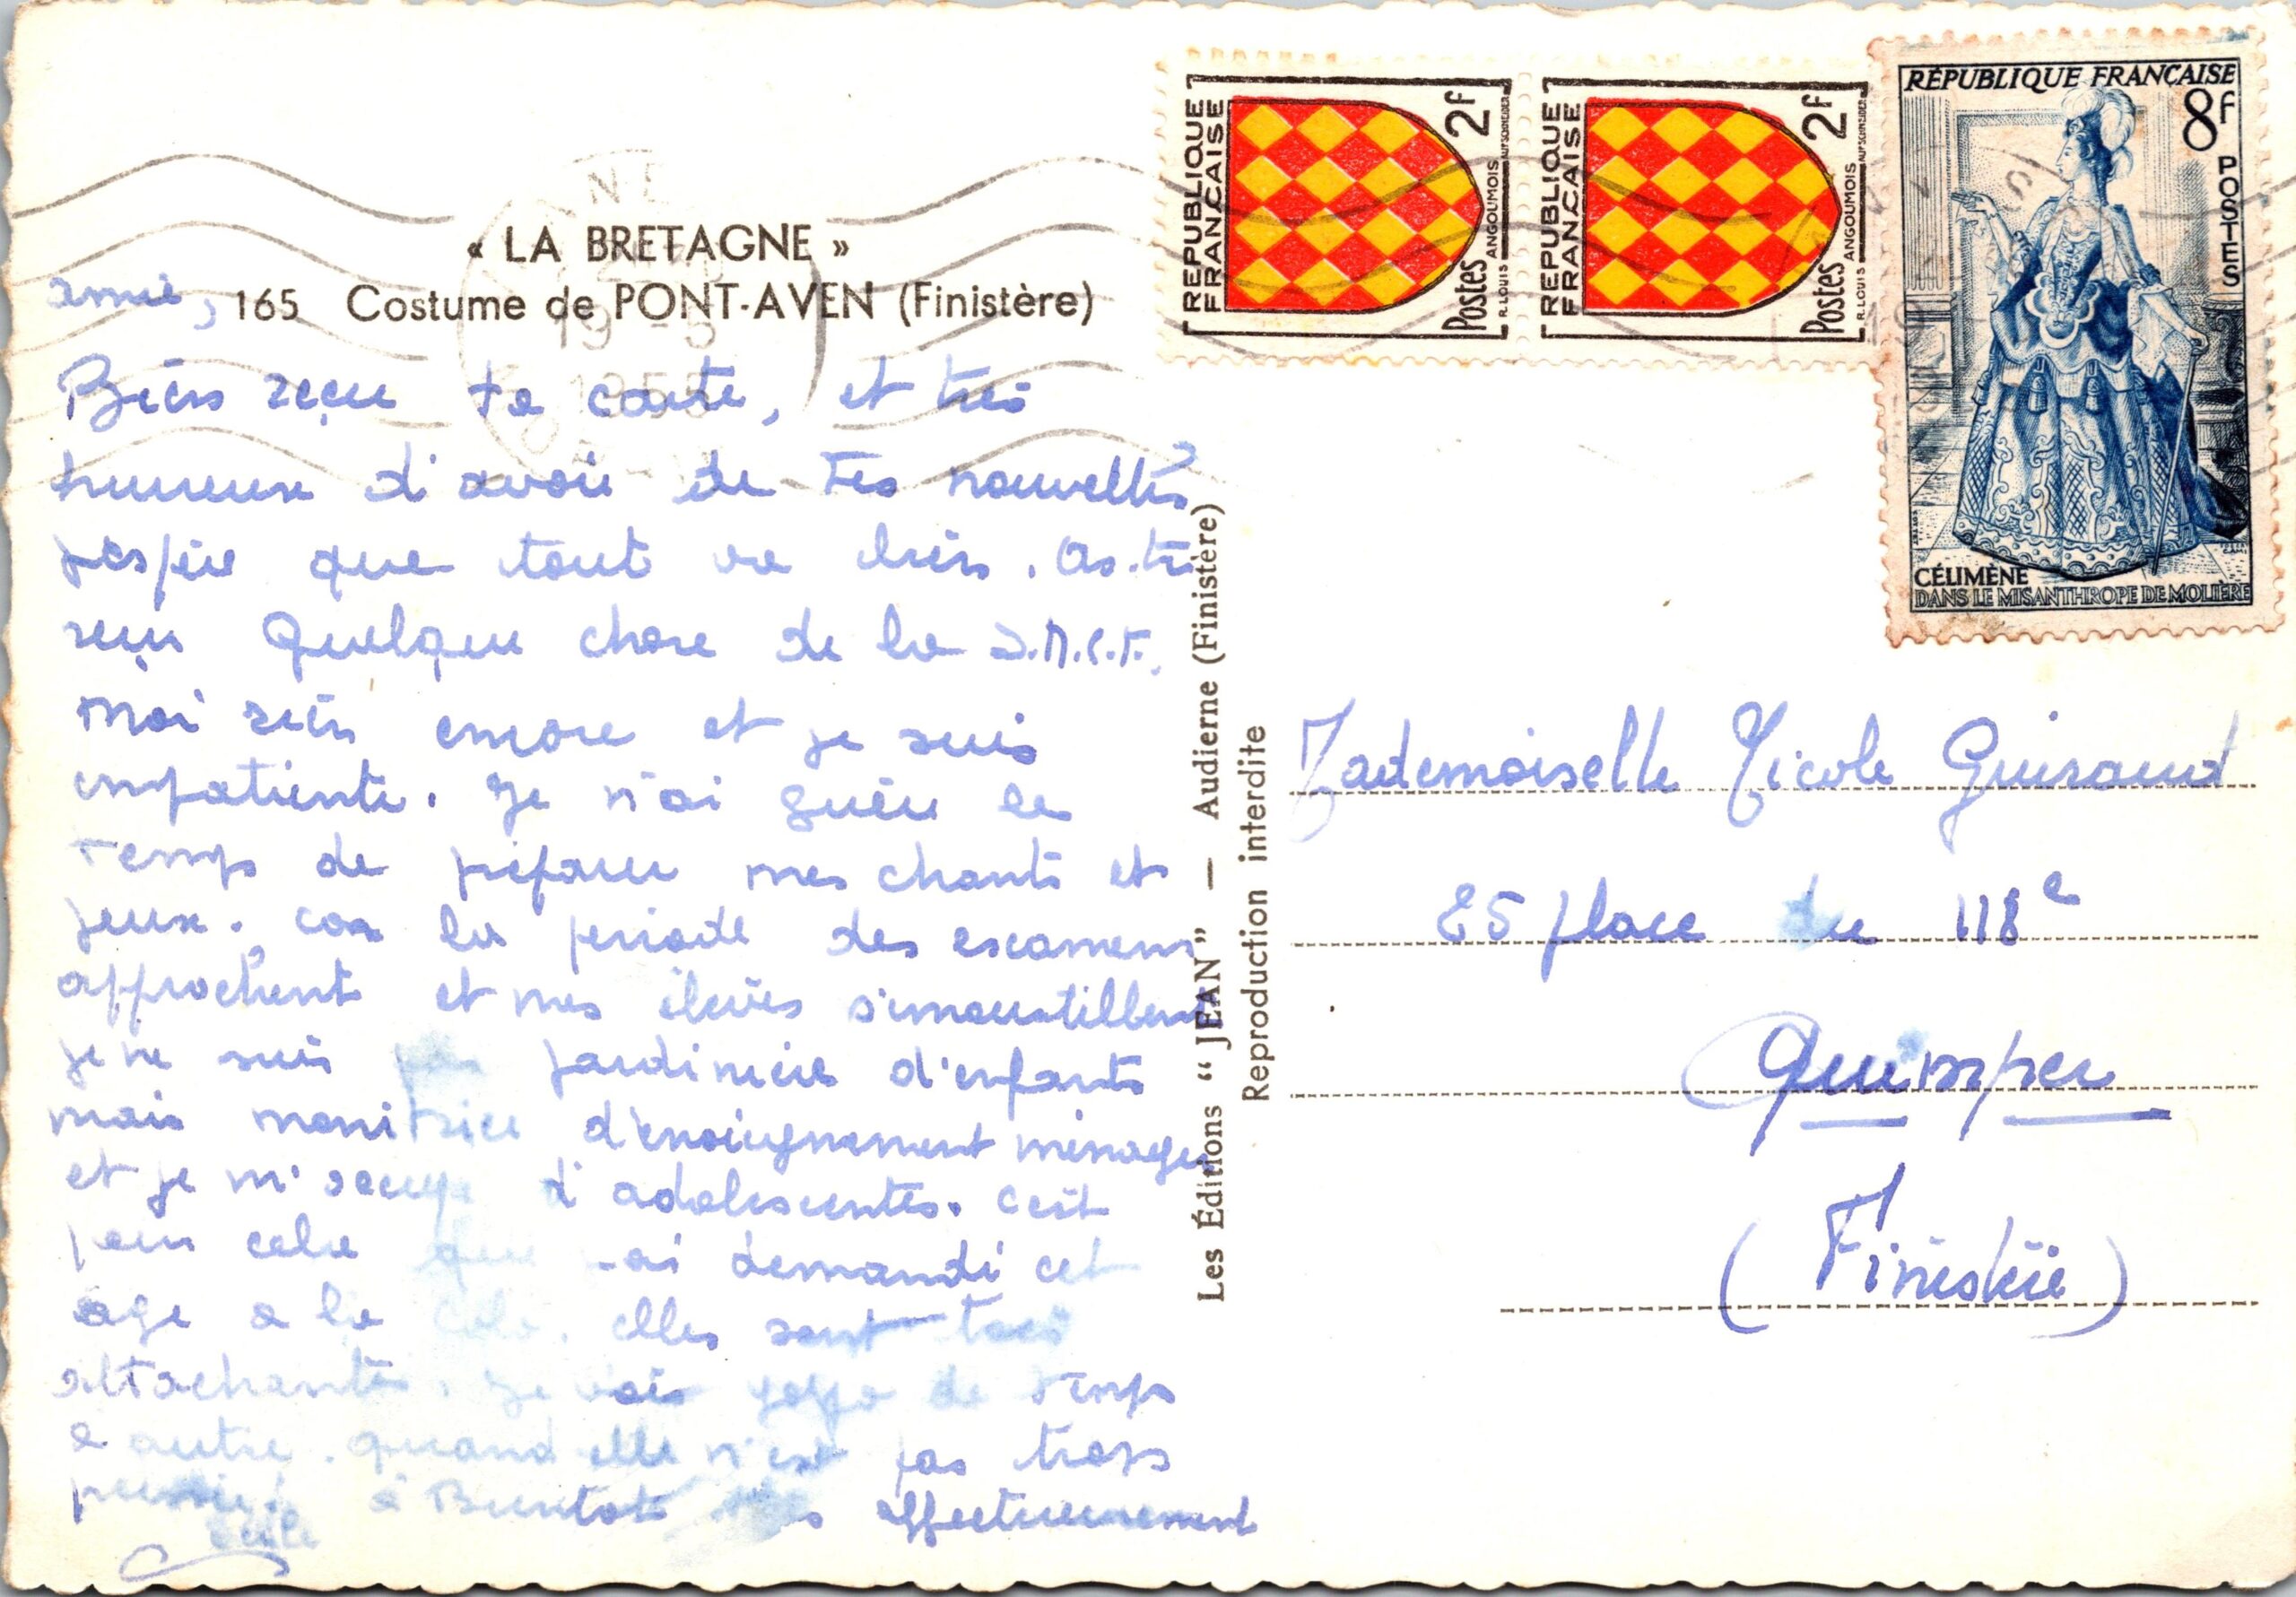 « LA BRETAGNE »
165 Costume de PONT-AVEN (Finistère)
19 - 5
1955
amie,
Bien reçu ta carte, et très
heureux d'avoir de tes nouvelles
j'espère que tout va bien. As-tu
reçu quelque chose de la
moi rien encore et je suis
impatiente. Je n'ai guère le
temps de préparer mes chants et
jeux. car la periode des examens
approchent et mes élèves s'émoustillent
je ne suis pas jardinière d'enfants
mais monitrice d'enseignement ménager
et je m'occupe d'adolescentes. c'est
pour cela que j'ai demandé cet
age a la colo. elles sont très
attachante. Je vois de temps
a autre. quand elle n'est pas trop
à Bientot affectueusement
Les Éditions “JEAN” — Audierne (Finistère)
Reproduction interdite
RÉPUBLIQUE FRANÇAISE
2F
Postes
ANGOUMOIS
R. LOUIS
RÉPUBLIQUE FRANÇAISE
2F
Postes
ANGOUMOIS
R. LOUIS
RÉPUBLIQUE FRANÇAISE
8F
POSTES
CÉLIMÈNE
DANS LE MISANTHROPE DE MOLIÈRE
Mademoiselle Nicole Guiraud
25 place du 118e
Quimper
(Finistère)